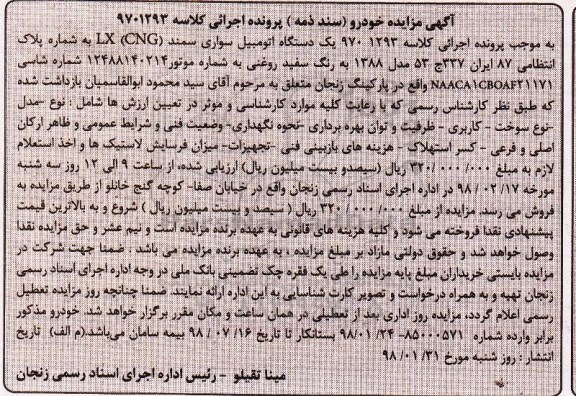 آگهی مزایده خودرو (سند ذمه ) پرونده اجرائی کلاسه ۹۷۰۱۲۹۳
به موجب پرونده اجرائی کلاسه ۱۲۹۳ ۹۷۰ یک دستگاه اتومبیل سواری سمند LX (CNG) به شماره پلاک
انتظامی ۸۷ ایران ۳۳۷ج ۵۳ مدل ۱۳۸۸ به رنگ سفید روغنی به شماره موتور۱۲۴۸۸۱۴۰۲۱۴ شماره شاسی
NAACA۱CBOAF۲۱۱۷۱ واقع در پارکینگ زنجان متعلق به مرحوم آقای سید محمود ابوالقاسمیان بازداشت شده
که طبق نظر کارشناس رسمی که با رعایت کلیه موارد کارشناسی و موثر در تعیین ارزش ها شامل : نوع -مدل
-نوع سوخت - کاربری - ظرفیت و توان بهره برداری -نحوه نگهداری- وضعیت فنی و شرایط عمومی و ظاهر ارکان
اصلی و فرعی - کسر استهلاک - هزینه های بازبینی فنی -تجهیزات- میزان فرسایش لاستیک ها و اخذ استعلام
لازم به مبلغ ۳۲۰/۰۰۰/۰۰۰ ریال (سیصدو بیست میلیون ریال) ارزیابی شده، از ساعت ۹ الی ۱۲ روز سه شنبه
مورخه ۹۸/۰۲/۱۷ در اداره اجرای اسناد رسمی زنجان واقع در خیابان صفا- کوچه گنج خانلو از طریق مزایده به
فروش می رسد. مزایده از مبلغ ۳۲۰/۰۰۰/۰۰۰ ریال ( سیصد و بیست میلیون ریال ) شروع و به بالاترین قیمت
پیشنهادی نقدا فروخته می شود و کلیه هزینه های قانونی به عهده برنده مزایده است و نیم عشر و حق مزایده نقدا
وصول خواهد شد و حقوق دولتی مازاد بر مبلغ مزایده ، به عهده برنده مزایده می باشد . ضمنا جهت شرکت در
مزایده بایستی خریداران مبلغ پایه مزایده را طی یک فقره چک تضمینی بانک ملی در وجه اداره اجرای اسناد رسمی
زنجان تهیه و به همراه درخواست و تصویر کارت شناسایی به این اداره ارائه نمایند. ضمنا چنانچه روز مزایده تعطیل
رسمی اعلام گردد، مزایده روز اداری بعد از تعطیلی در همان ساعت و مکان مقرر برگزار خواهد شد. خودرو مذکور
برابر وارده شماره ۸۵۰۰۰۵۷۱- ۹۸/۰۱/۲۴ بستانکار تا تاریخ ۹۸/۰۷/۱۶ بیمه سامان می‌باشد.(م الف) تاریخ
انتشار : روز شنبه مورخ ۹۸/۰۱/۳۱
مینا تقیلو - رئیس اداره اجرای اسناد رسمی زنجان